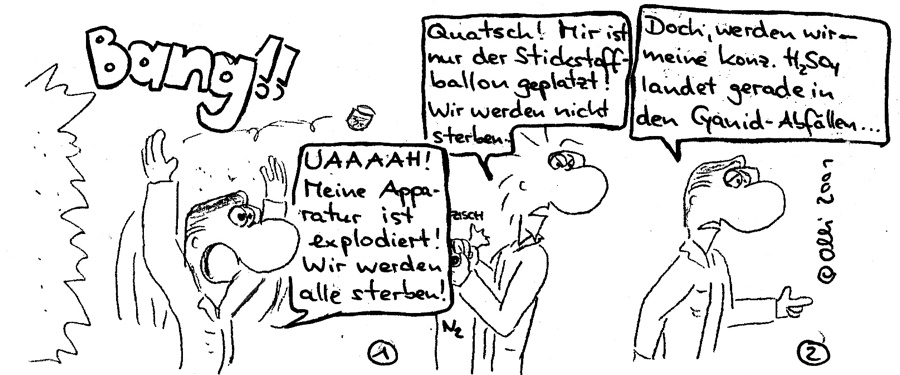 Bang!!
UAAAAH!
Meine Appa-
ratur ist
explodiert!
Wir werden
alle sterben!
1
Quatsch! Mir ist
nur der Stickstoff-
ballon geplatzt!
Wir werden nicht
sterben.
ZISCH
N2
Doch, werden wir—
meine konz. H2SO4
landet gerade in
den Cyanid-Abfällen...
2
© Olli 2001